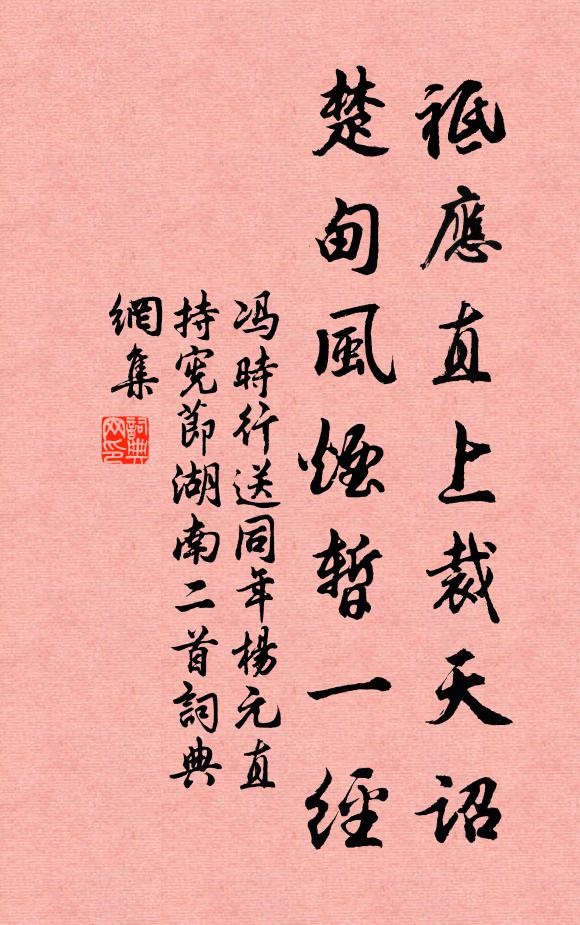 祗應直上裁天詔
楚甸風煙暫一經
馮時行送同年楊元直
持憲節湖南二首詞典
網集
詞典
网印